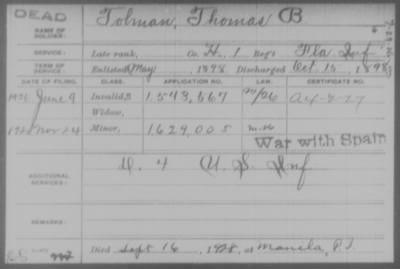 DEAD
NAME OF SOLDIER: Tolman, Thomas B
SERVICE: Late rank, Co. H, 1 Reg't Fla Inf
TERM OF SERVICE: Enlisted May, 1898 Discharged Oct. 15, 1898
DATE OF FILING. CLASS. APPLICATION NO. LAW. CERTIFICATE NO.
1926 June 9 Invalid, 1,543,567
Nov 24 Minor, 1629,005
Widow,
War with Spain
ADDITIONAL SERVICES: U.S. Inf
REMARKS:
Died Sept 16, 1928, at Manila, P.I.